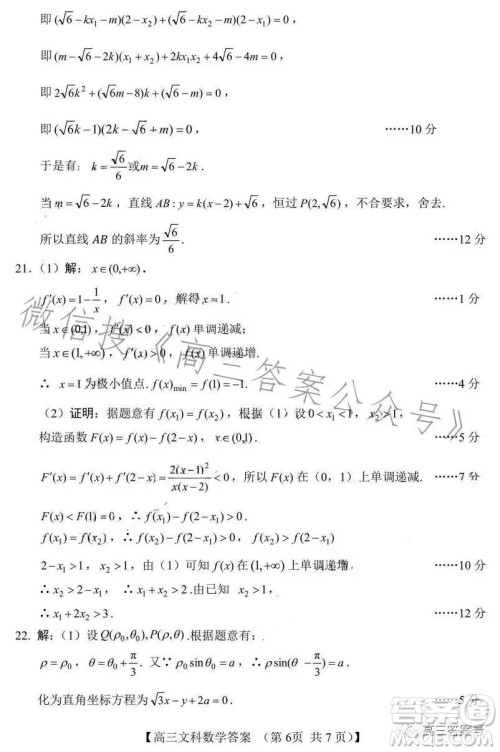 即(√6-kx₁-m)(2-x₂)+(√6-kx₂-m)(2-x₁)=0，
即(m-√6-2k)(x₁+x₂)+2kx₁x₂+4√6-4m=0，
即2√6k²+(√6m-8)k+(√6-m)=0，
即(√6k-1)(2k-√6+m)=0， ……10 分
于是有：k=√6/6或m=√6-2k．
当m=√6-2k，直线 AB:y=k(x-2)+√6，恒过P(2,√6)，不合要求，舍去．
所以直线 AB 的斜率为√6/6． ……12 分
21．（1）解：x∈(0,+∞)．
f′(x)=1-1/x，f′(x)=0，解得x=1． ……1 分
当x∈(0,1)，f′(x)<0，f(x)单调递减；
当x∈(1,+∞)，f′(x)>0，f(x)单调递增．
∴ x=1为极小值点．f(x)min=f(1)=-1． ……4 分
（2）证明：据题意有f(x₁)=f(x₂)，根据（1）设0<x₁<1，x₂>1，
构造函数F(x)=f(x)-f(2-x)，x∈(0,1)． ……5 分
F′(x)=f′(x)+f′(2-x)=2(x-1)²/x(x-2)<0，所以F(x)在（0，1）上单调递减．……7 分
F(x)<F(1)=0．∴f(x₁)-f(2-x₁)>0，
f(x₁)=f(x₂)，∴f(x₂)-f(2-x₁)>0，
2-x₁>1，x₂>1，由（1）可知f(x)在(1,+∞)上单调递增， ……10 分
∴x₂>2-x₁．∴x₁+x₂>2．由已知 x₂>1，
∴x₁+2x₂>3． ……12 分
22．解：（1）设Q(ρ₀,θ₀),P(ρ,θ)．根据题意有：
ρ=ρ₀，θ=θ₀+π/3．又∵ρ₀sinθ₀=a，∴ρsin(θ-π/3)=a，
化为直角坐标方程为√3x-y+2a=0． ……5 分
【高三文科数学答案 （第 6页 共 7 页）】
微信搜《高三答案公众号》